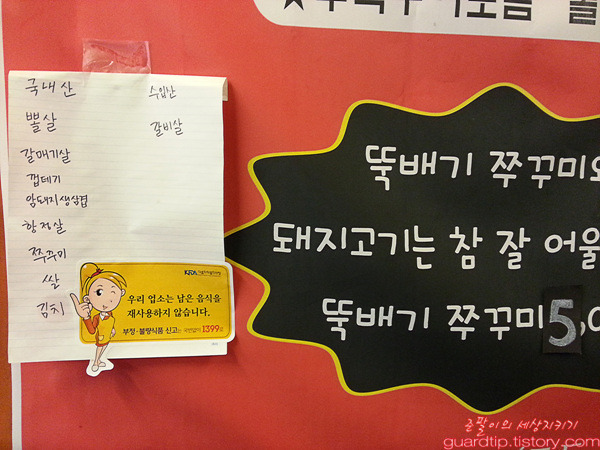 국내산
수입산
뽈살
갈비살
갈매기살
껍데기
암돼지생삼겹
항정살
쭈꾸미
쌀
김치
우리 업소는 남은 음식을
재사용하지 않습니다.
부정·불량식품 신고는 국번없이 1399로
뚝배기 쭈꾸미와
돼지고기는 참 잘 어울
뚝배기 쭈꾸미 5,0
존팔이의 세상지키기
guardtip.tistory.com